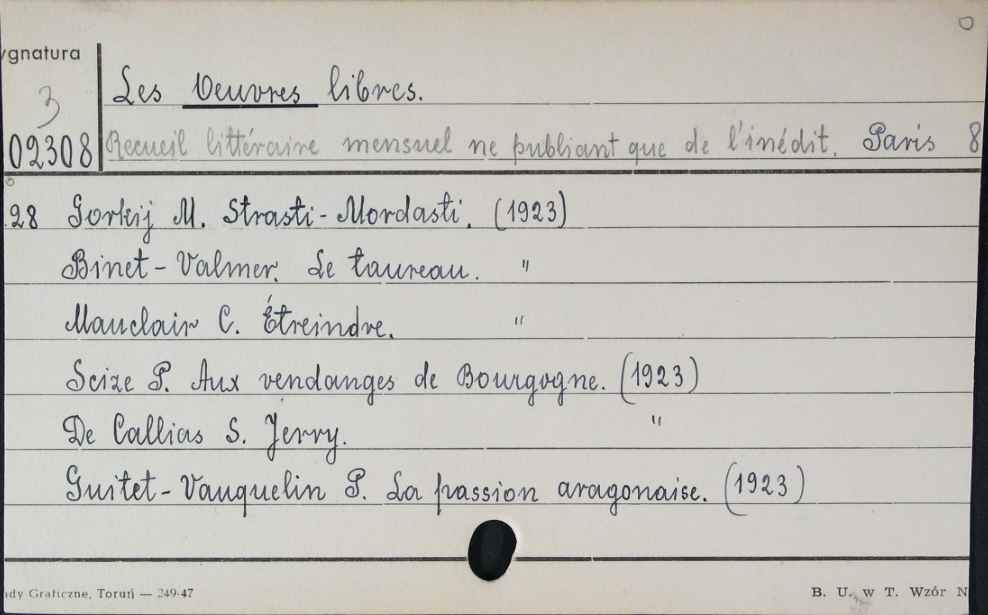 ygnatura
3
02308
Les Oeuvres libres.
Recueil littéraire mensuel ne publiant que de l'inédit. Paris 8
28 Gorkij M. Strasti-Mordasti. (1923)
Binet-Valmer. Le taureau. "
Mauclair C. Étreindre. "
Seize P. Aux vendanges de Bourgogne. (1923)
De Callias S. Jerry. "
Guitet-Vauquelin P. La passion aragonaise. (1923)
ady Graficzne, Toruń — 249-47
B. U. w T. Wzór N